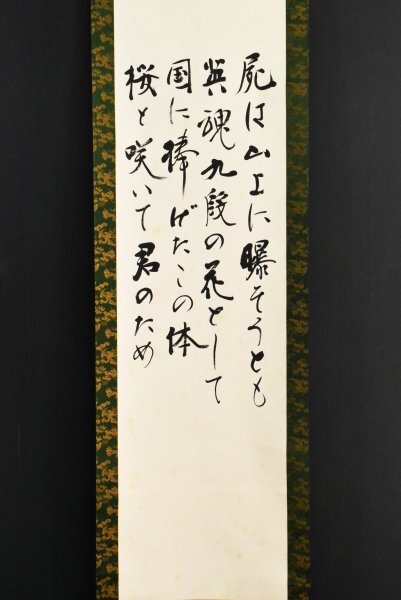 屍は山上に曝そうとも
英魂九段の花として
国に捧げたこの体
桜と咲いて君のため